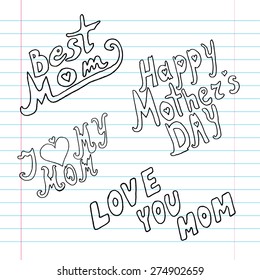 Best
Mom
Happy
Mother's
DAY
I ♡ MY
MOM
LOVE
YOU
MOM
www.shutterstock.com · 274902659